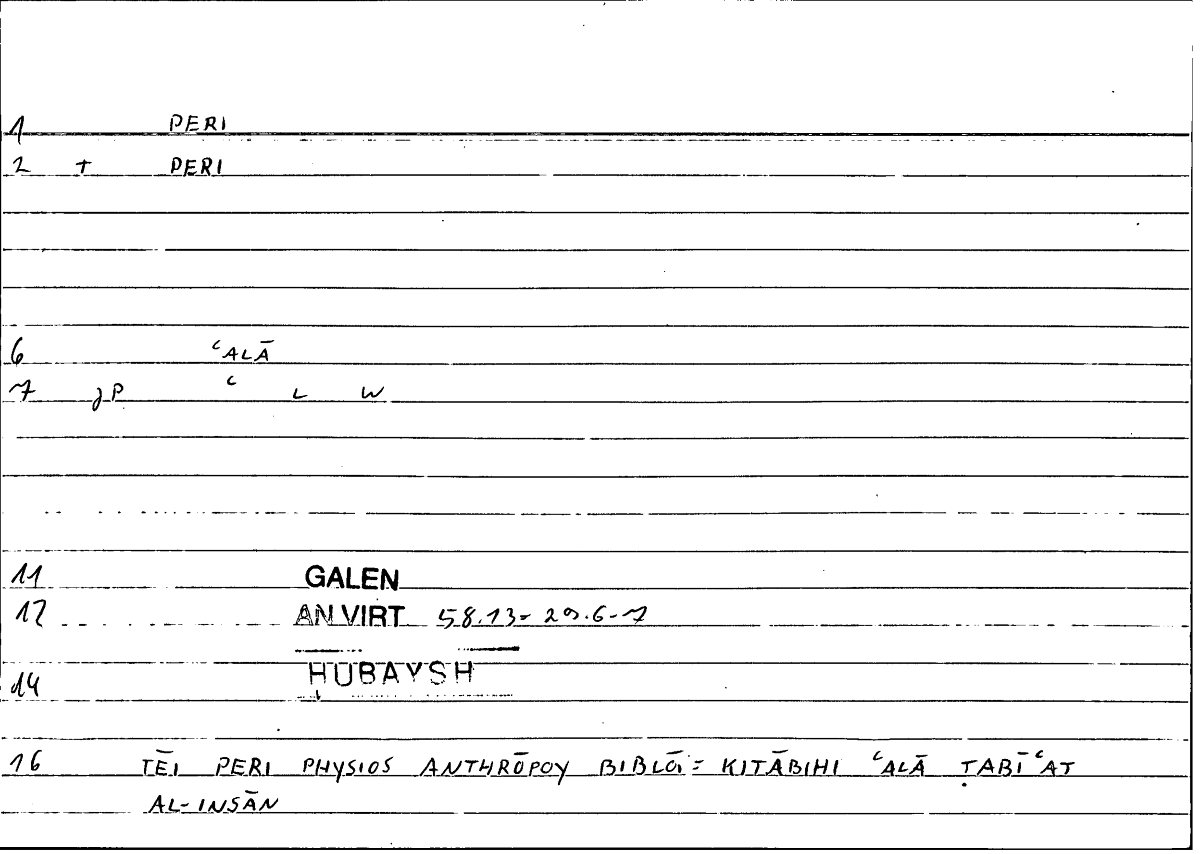 1 PERI
2 T PERI
6 ʿALĀ
7 jP ʿ L W
11 GALEN
12 AN VIRT 58.13 = 29.6-7
14 HUBAYSH
16 TĒI PERI PHYSIOS ANTHRŌPOY BIBLŌI = KITĀBIHI ʿALĀ ṬABĪʿAT
AL-INSĀN